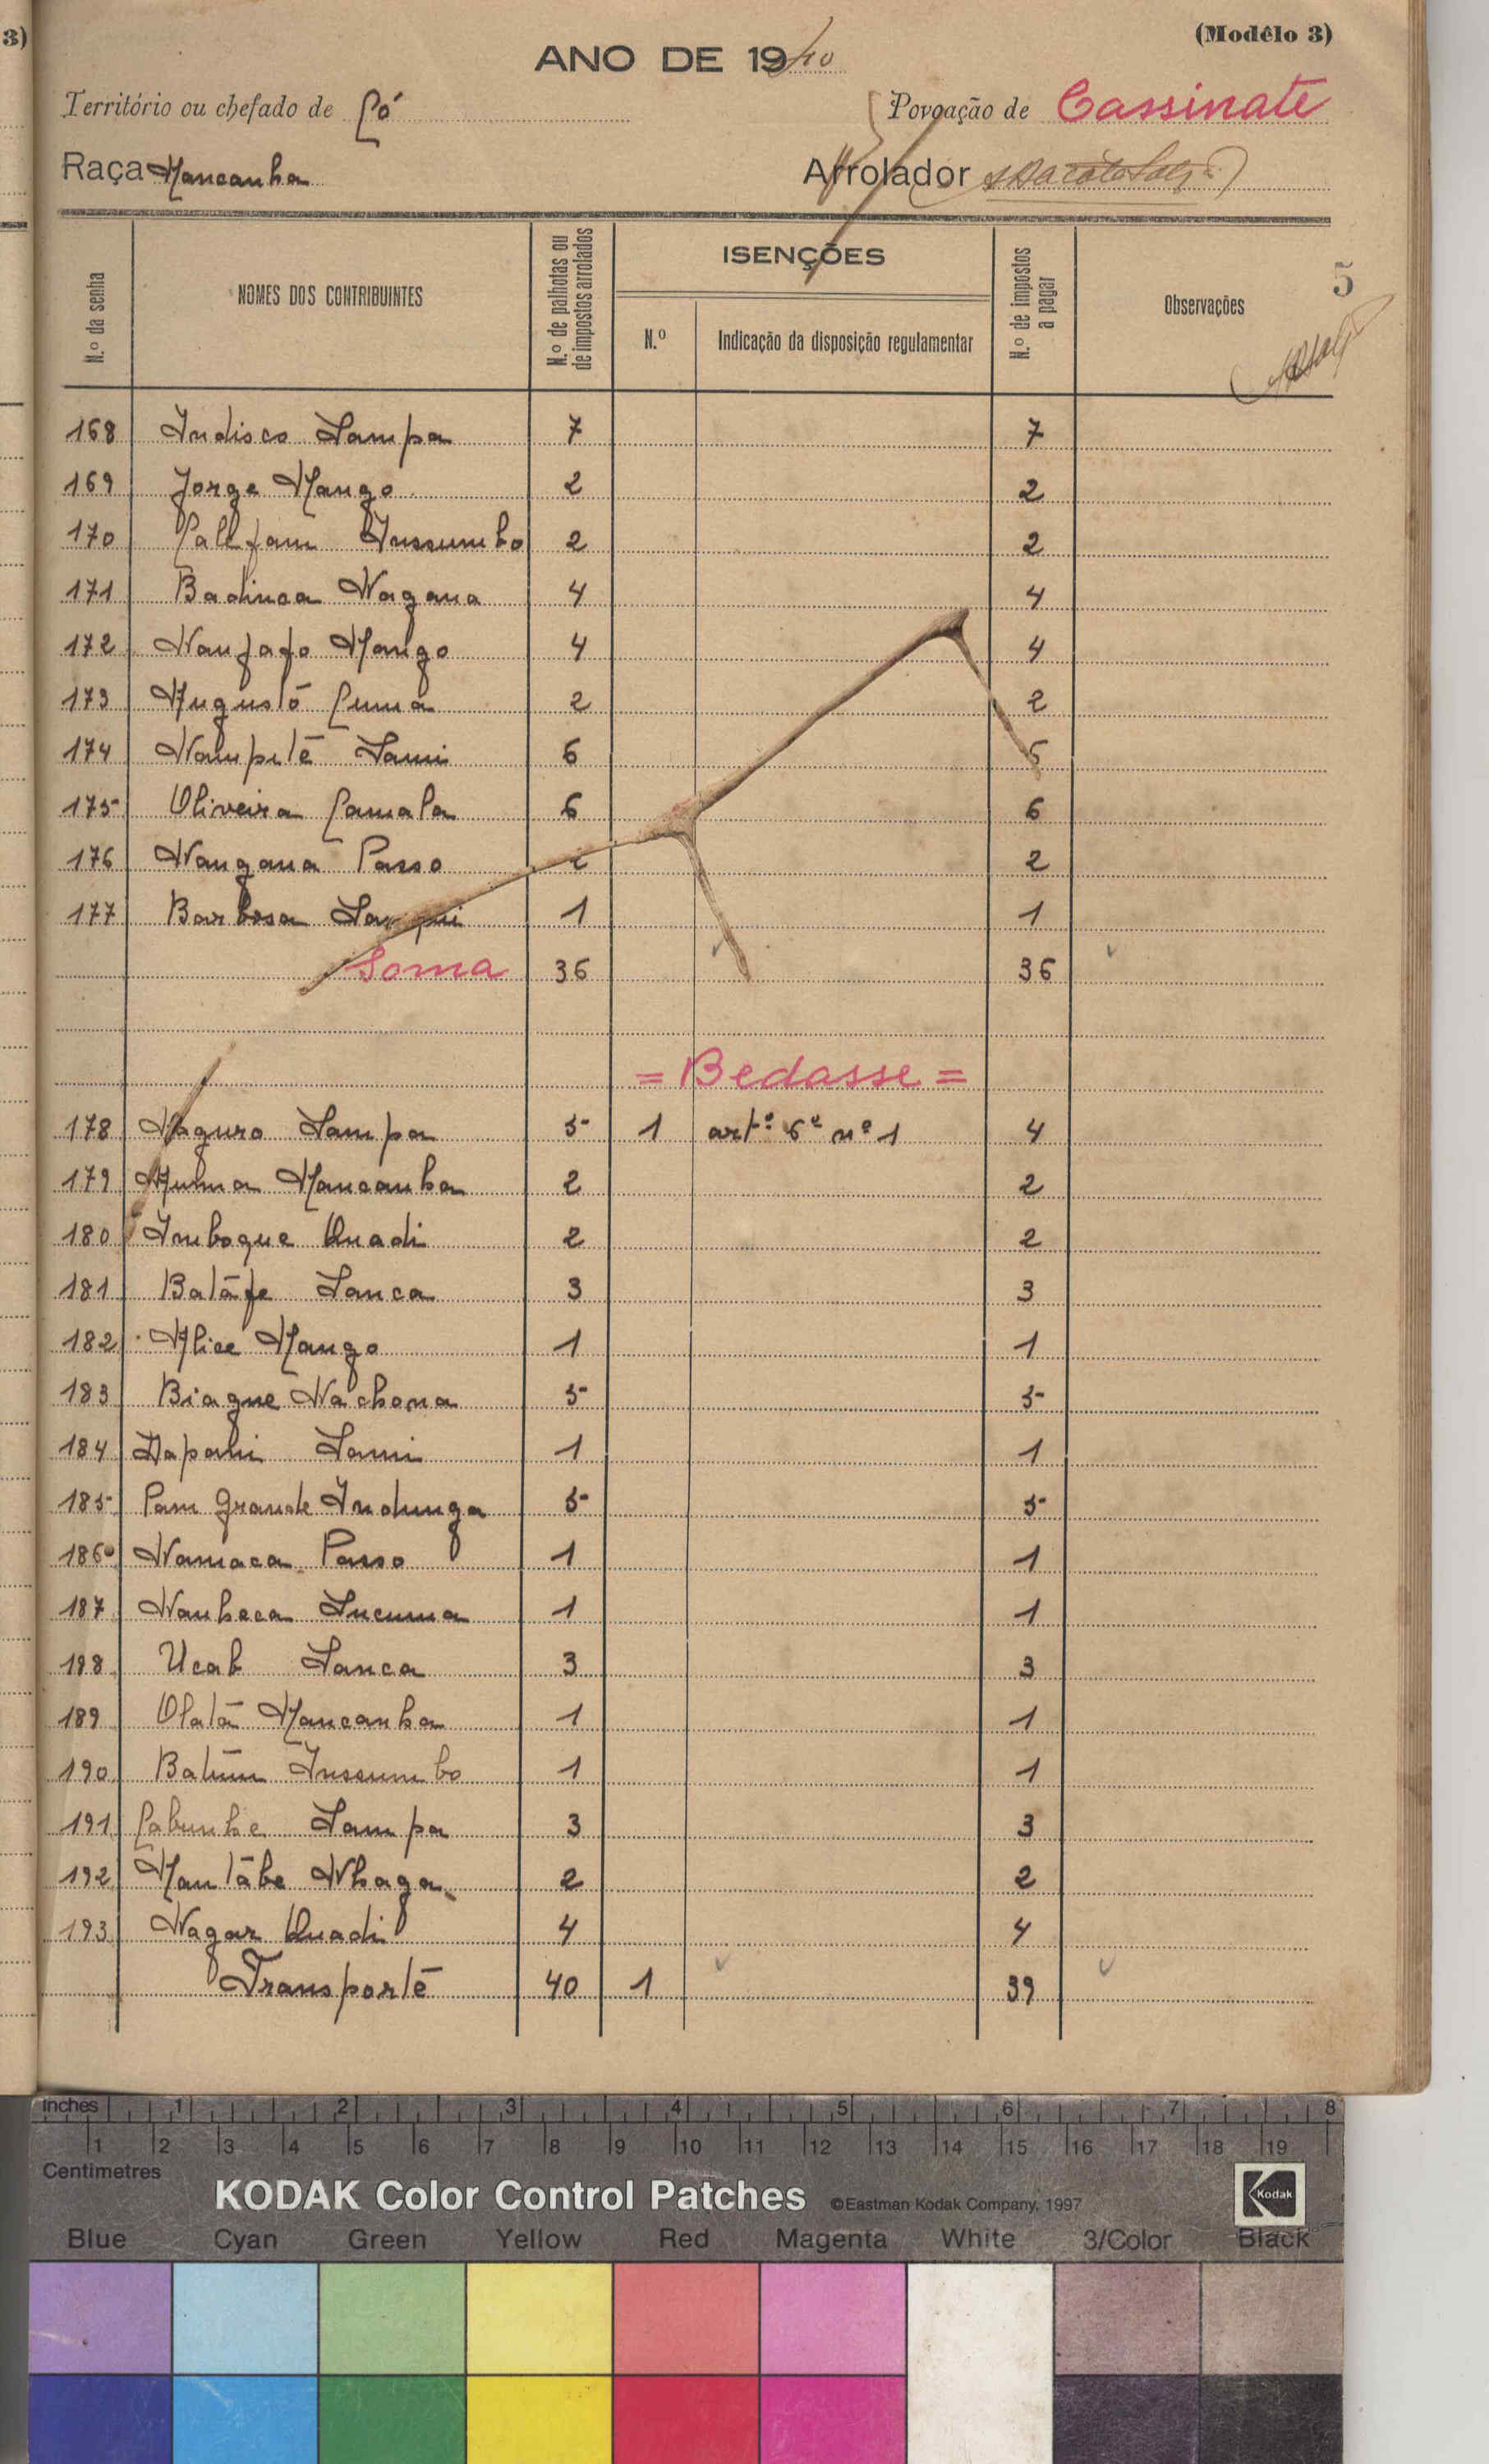 3)
(Modêlo 3)
ANO DE 1940
Território ou chefado de Có
Povoação de Cassinate
Raça Mancanha
Arrolador
N.º da senha
NOMES DOS CONTRIBUINTES
N.º de palhotas ou de impostos arrolados
ISENÇÕES
N.º
Indicação da disposição regulamentar
N.º de impostos a pagar
Observações
5
168 Indisco Sampa 7 7
169 Jorge Mango 2 2
170 Inssumbo 2 2
171 Badinca Nagana 4 4
172 Nanfafo Mango 4 4
173 Augusto Cuma 2 2
174 Nampilé Sami 6 6
175 Oliveira Camala 6 6
176 Nangana Passo 2 2
177 Barbosa 1 1
Soma 36 36
= Bedasse =
178 Naguro Sampa 5 1 artº 6º nº 1 4
179 Mancanha 2 2
180 Imboque Quadi 2 2
181 Batáfe Sanca 3 3
182 Alice Mango 1 1
183 Biague Nachona 5 5
184 Sami 1 1
185 Pam Grande Indunga 5 5
186 Namaca Passo 1 1
187 Nanheca Lucuma 1 1
198 Ucab Sanca 3 3
189 Olatá Mancanha 1 1
190 Inssumbo 1 1
191 Cabunhe Sampa 3 3
192 Mantábe Nhaga 2 2
193 Nagar Quadi 4 4
Transporte 40 1 39
inches 1 2 3 4 5 6 7 8
1 2 3 4 5 6 7 8 9 10 11 12 13 14 15 16 17 18 19
Centimetres
KODAK Color Control Patches ©Eastman Kodak Company, 1997 Kodak
Blue Cyan Green Yellow Red Magenta White 3/Color Black